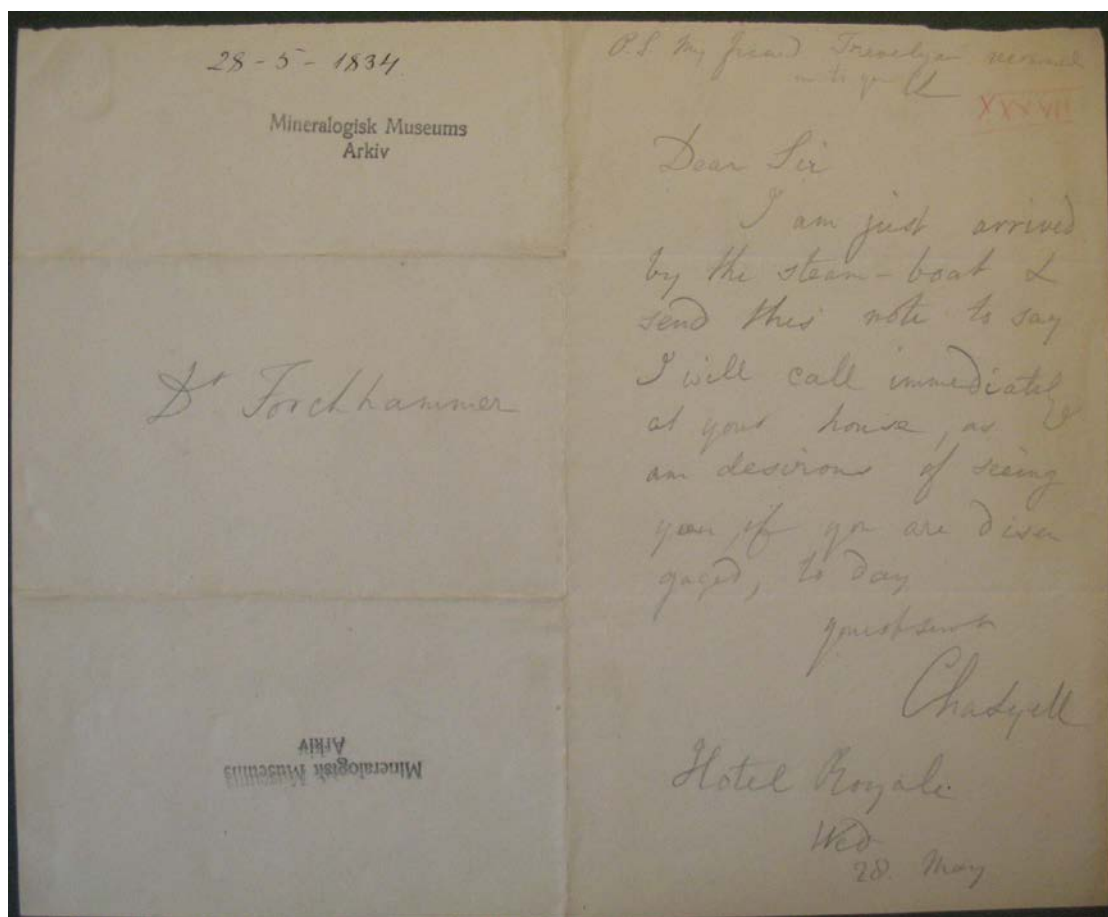 28-5-1834
Mineralogisk Museums
Arkiv
Dr Forchhammer
Mineralogisk Museums
Arkiv
P.S. My friend Trevelyan
to you
XXXVII
Dear Sir
I am just arrived
by the steam-boat &
send this note to say
I will call immediately
at your house, as I
am desirous of seeing
you, if you are disen
gaged, to day
Cha Lyell
Hotel Royale
Wed
28. May